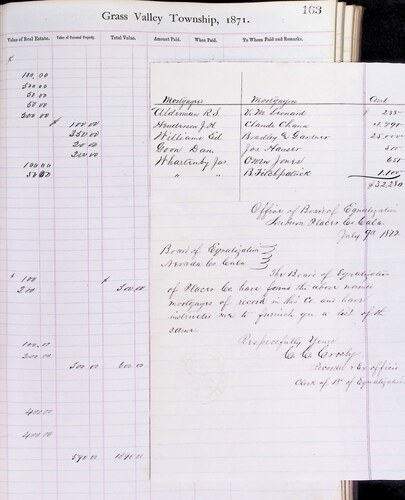 163
Grass Valley Township, 1871.
Value of Real Estate. Value of Personal Property. Total Value. Amount Paid. When Paid. To Whom Paid and Remarks.
$
100.00
500.00
50.00
50.00
200.00
$ 100.00
350.00
20.00
200.00
100.00
50.00
$ 100
200 $ 300.00
100.00
200.00
300.00 600.00
400.00
400.00
590.00
Mortgagors Mortgagees Amt
Alderman R.S. E. M. Leonard $ 235
Henderson J.H. Claude Chana 4,791
Williams Ed. Bradley & Gardner 25,000
Goon Dam Jos Hanser 500
Whartenby Jas Owen Jones 650
" " B. Fitzpatrick 1,100
$32,280
Office of Board of Equalization
Auburn Placer Co. Cala.
July 9th 1872
Board of Equalization
Nevada Co. Cala
The Board of Equalization
of Placer Co. have found the above named
mortgages of record in this Co. and have
instructed me to furnish you a list of the
same.
Respectfully Yours
C. C. Crosby
& Ex officio
Clerk of Bd of Equalization